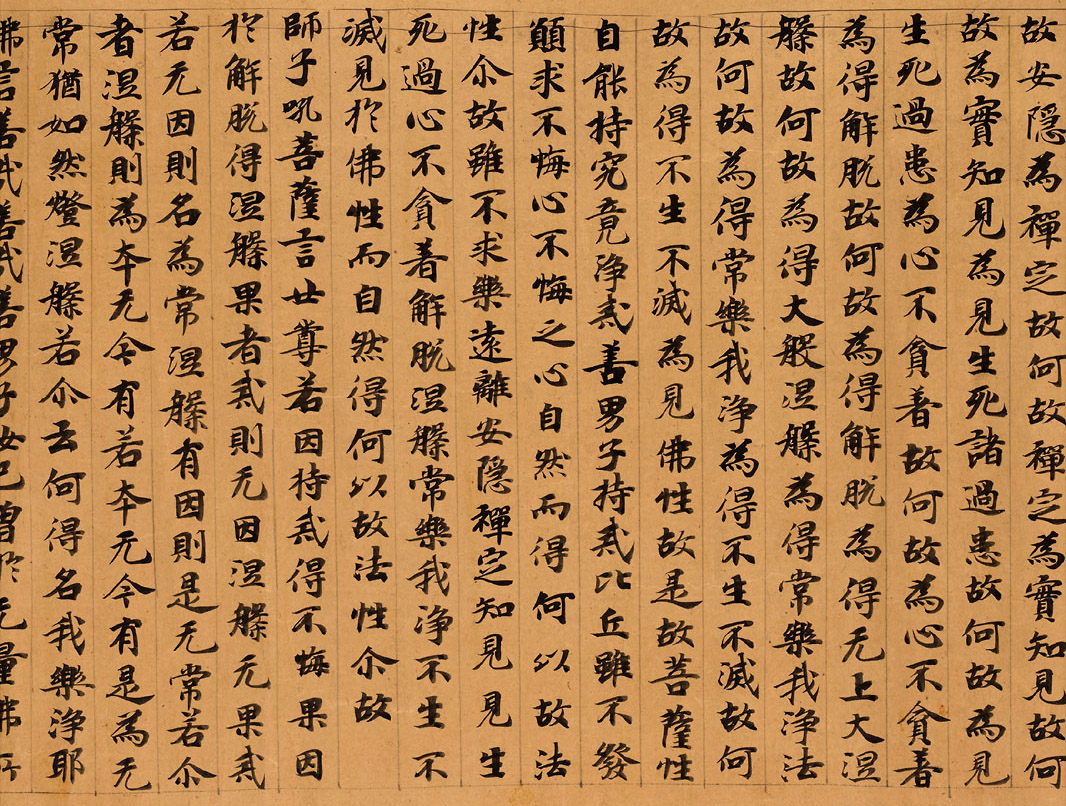 故安隱為禪定故何故禪定為實知見故何
故為實知見為見生死諸過患故何故為見
生死過患為心不貪著故何故為心不貪著
為得解脫故何故為得解脫為得无上大涅
槃故何故為得大般涅槃為得常樂我淨法
故何故為得常樂我淨為得不生不滅故何
故為得不生不滅為見佛性故是故菩薩性
自能持究竟淨戒善男子持戒比丘雖不發
願求不悔心不悔之心自然而得何以故法
性尒故雖不求樂遠離安隱禪定知見見生
死過心不貪著解脫涅槃常樂我淨不生不
滅見於佛性而自然得何以故法性尒故
師子吼菩薩言世尊若因持戒得不悔果因
於解脫得涅槃果者戒則无因涅槃无果戒
若无因則名為常涅槃有因則是无常若尒
者涅槃則為夲无今有若夲无今有是為无
常猶如然燈涅槃若尒云何得名我樂淨耶
佛言善哉善哉善男子汝已曾於无量佛所